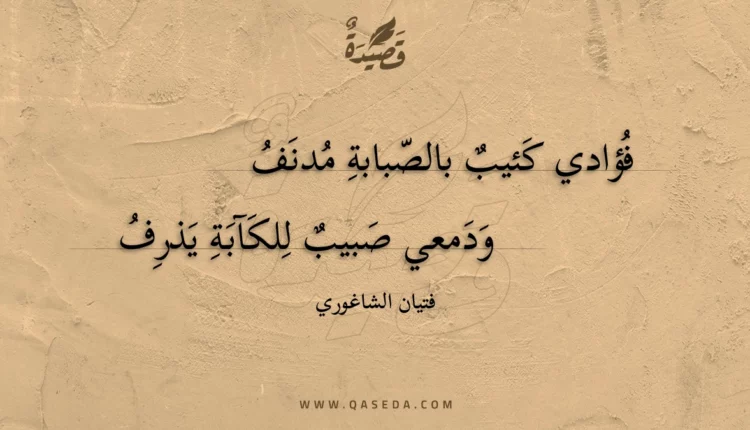 قَصِيْدَةٌ
فُؤادي كَئيبٌ بالصّبابةِ مُدنَفُ
وَدَمعي صَبيبٌ لِلكَآبَةِ يَذرِفُ
فتيان الشاغوري
WWW.QASEDA.COM